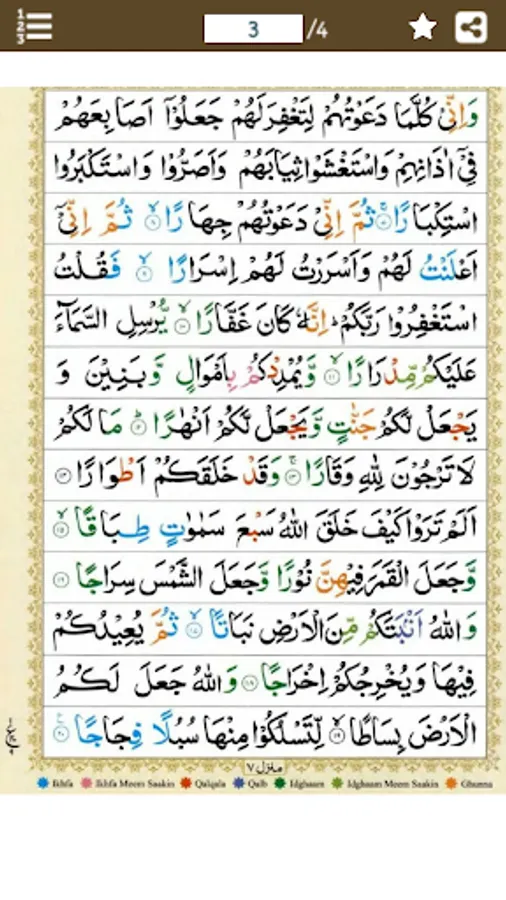 3 /4
وَاِنِّیْ كُلَّمَا دَعَوْتُهُمْ لِتَغْفِرَ لَهُمْ جَعَلُوْۤا اَصَابِعَهُمْ
فِیْۤ اٰذَانِهِمْ وَاسْتَغْشَوْا ثِیَابَهُمْ وَاَصَرُّوْا وَاسْتَكْبَرُوا
اسْتِكْبَارًا ۷ ثُمَّ اِنِّیْ دَعَوْتُهُمْ جِهَارًا ۸ ثُمَّ اِنِّیْۤ
اَعْلَنْتُ لَهُمْ وَاَسْرَرْتُ لَهُمْ اِسْرَارًا ۹ فَقُلْتُ
اسْتَغْفِرُوْا رَبَّكُمْ اِنَّهٗ كَانَ غَفَّارًا ۱۰ یُّرْسِلِ السَّمَآءَ
عَلَیْكُمْ مِّدْرَارًا ۱۱ وَّیُمْدِدْكُمْ بِاَمْوَالٍ وَّبَنِیْنَ وَ
یَجْعَلْ لَّكُمْ جَنّٰتٍ وَّیَجْعَلْ لَّكُمْ اَنْهٰرًا ۱۲ مَا لَكُمْ
لَا تَرْجُوْنَ لِلّٰهِ وَقَارًا ۱۳ وَقَدْ خَلَقَكُمْ اَطْوَارًا ۱۴
اَلَمْ تَرَوْا كَیْفَ خَلَقَ اللّٰهُ سَبْعَ سَمٰوٰتٍ طِبَاقًا ۱۵
وَّجَعَلَ الْقَمَرَ فِیْهِنَّ نُوْرًا وَّجَعَلَ الشَّمْسَ سِرَاجًا ۱۶
وَاللّٰهُ اَنْۢبَتَكُمْ مِّنَ الْاَرْضِ نَبَاتًا ۱۷ ثُمَّ یُعِیْدُكُمْ
فِیْهَا وَیُخْرِجُكُمْ اِخْرَاجًا ۱۸ وَاللّٰهُ جَعَلَ لَكُمُ
الْاَرْضَ بِسَاطًا ۱۹ لِّتَسْلُكُوْا مِنْهَا سُبُلًا فِجَاجًا ۲۰
منزل ۷
Ikhfa Ikhfa Meem Saakin Qalqala Qalb Idghaam Idghaam Meem Saakin Ghunna